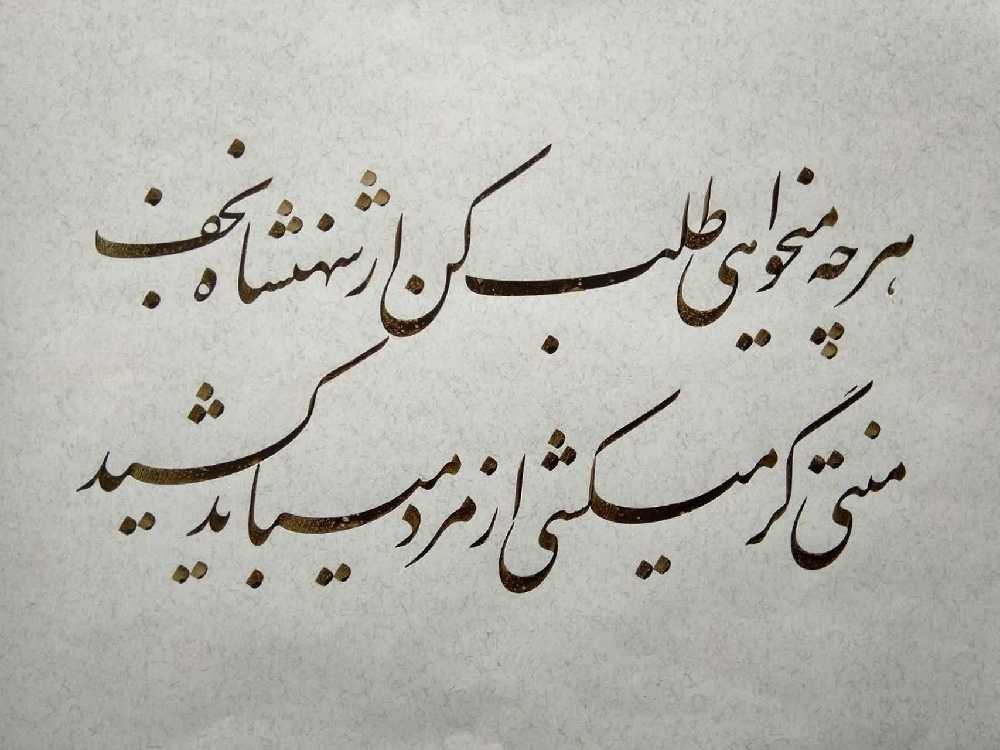 هر چه میخواهی طلب کن از شهنشاه نجف
منتی گر میکشی از مرد میباید کشید